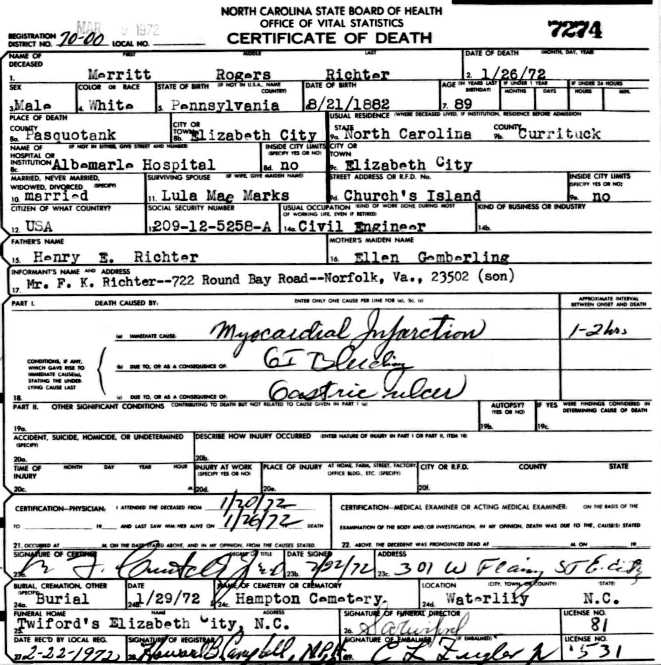 NORTH CAROLINA STATE BOARD OF HEALTH
OFFICE OF VITAL STATISTICS
CERTIFICATE OF DEATH
7274
MAR 1972
REGISTRATION DISTRICT NO. 70-00 LOCAL NO.
NAME OF DECEASED FIRST MIDDLE LAST DATE OF DEATH (MONTH, DAY, YEAR)
1. Merritt Rogers Richter 2. 1/26/72
SEX COLOR OR RACE STATE OF BIRTH (IF NOT IN U.S.A., NAME COUNTRY) DATE OF BIRTH AGE (IN YEARS LAST BIRTHDAY) IF UNDER 1 YEAR MONTHS DAYS IF UNDER 24 HOURS HOURS MIN.
3. Male 4. White 5. Pennsylvania 8/21/1882 7. 89
PLACE OF DEATH USUAL RESIDENCE (WHERE DECEASED LIVED, IF INSTITUTION, RESIDENCE BEFORE ADMISSION)
COUNTY CITY OR TOWN STATE COUNTY
8a. Pasquotank 8b. Elizabeth City 9a. North Carolina 9b. Currituck
NAME OF HOSPITAL OR INSTITUTION (IF NOT IN EITHER, GIVE STREET AND NUMBER) INSIDE CITY LIMITS (SPECIFY YES OR NO) CITY OR TOWN
8c. Albemarle Hospital 8d. no 9c. Elizabeth City
MARRIED, NEVER MARRIED, WIDOWED, DIVORCED (SPECIFY) SURVIVING SPOUSE (IF WIFE, GIVE MAIDEN NAME) STREET ADDRESS OR R.F.D. NO. INSIDE CITY LIMITS (SPECIFY YES OR NO)
10. married 11. Lula Mae Marks 9d. Church's Island 9e. no
CITIZEN OF WHAT COUNTRY? SOCIAL SECURITY NUMBER USUAL OCCUPATION (KIND OF WORK DONE DURING MOST OF WORKING LIFE, EVEN IF RETIRED) KIND OF BUSINESS OR INDUSTRY
12. USA 13. 209-12-5258-A 14a. Civil Engineer 14b.
FATHER'S NAME MOTHER'S MAIDEN NAME
15. Henry E. Richter 16. Ellen Gemberling
INFORMANT'S NAME AND ADDRESS
17. Mr. F. K. Richter--722 Round Bay Road--Norfolk, Va., 23502 (son)
PART I. DEATH CAUSED BY: ENTER ONLY ONE CAUSE PER LINE FOR (a), (b), (c) APPROXIMATE INTERVAL BETWEEN ONSET AND DEATH
(a) IMMEDIATE CAUSE Myocardial Infarction 1-2 hrs
CONDITIONS, IF ANY, WHICH GAVE RISE TO IMMEDIATE CAUSE(a), STATING THE UNDERLYING CAUSE LAST
(b) DUE TO, OR AS A CONSEQUENCE OF GI Bleeding
18. (c) DUE TO, OR AS A CONSEQUENCE OF Gastric ulcer
PART II. OTHER SIGNIFICANT CONDITIONS CONTRIBUTING TO DEATH BUT NOT RELATED TO CAUSE GIVEN IN PART I (a) AUTOPSY? (YES OR NO) IF YES WERE FINDINGS CONSIDERED IN DETERMINING CAUSE OF DEATH
19a. 19b. 19c.
ACCIDENT, SUICIDE, HOMICIDE, OR UNDETERMINED (SPECIFY) DESCRIBE HOW INJURY OCCURRED (ENTER NATURE OF INJURY IN PART I OR PART II, ITEM 18)
20a. 20b.
TIME OF INJURY MONTH DAY YEAR HOUR INJURY AT WORK (SPECIFY YES OR NO) PLACE OF INJURY AT HOME, FARM, STREET, FACTORY, OFFICE BLDG., ETC. (SPECIFY) CITY OR R.F.D. COUNTY STATE
20c. 20d. 20e. 20f.
CERTIFICATION—PHYSICIAN: I ATTENDED THE DECEASED FROM 1/20/72
TO 19 AND LAST SAW HIM/HER ALIVE ON 1/26/72 DEATH
21. OCCURRED AT M. ON THE DATE STATED ABOVE, AND IN MY OPINION, FROM THE CAUSES STATED
CERTIFICATION—MEDICAL EXAMINER OR ACTING MEDICAL EXAMINER: ON THE BASIS OF THE
EXAMINATION OF THE BODY AND/OR INVESTIGATION, IN MY OPINION, DEATH WAS DUE TO THE, CAUSE(S) STATED
22. ABOVE. THE DECEDENT WAS PRONOUNCED DEAD AT M. ON 19
SIGNATURE OF CERTIFIER DEGREE OR TITLE DATE SIGNED ADDRESS
23a. 23b. 2/22/72 23c. 301 W
BURIAL, CREMATION, OTHER (Specify) DATE NAME OF CEMETERY OR CREMATORY LOCATION (CITY, TOWN, OR COUNTY) (STATE)
24a. Burial 24b. 1/29/72 24c. Hampton Cemetery 24d. Waterlily N.C.
FUNERAL HOME NAME ADDRESS SIGNATURE OF FUNERAL DIRECTOR LICENSE NO.
25. Twiford's Elizabeth City, N.C. 26. 81
DATE REC'D BY LOCAL REG. SIGNATURE OF REGISTRAR SIGNATURE OF EMBALMER (IF EMBALMED) LICENSE NO.
2-22-1972 Howard B Campbell, 531